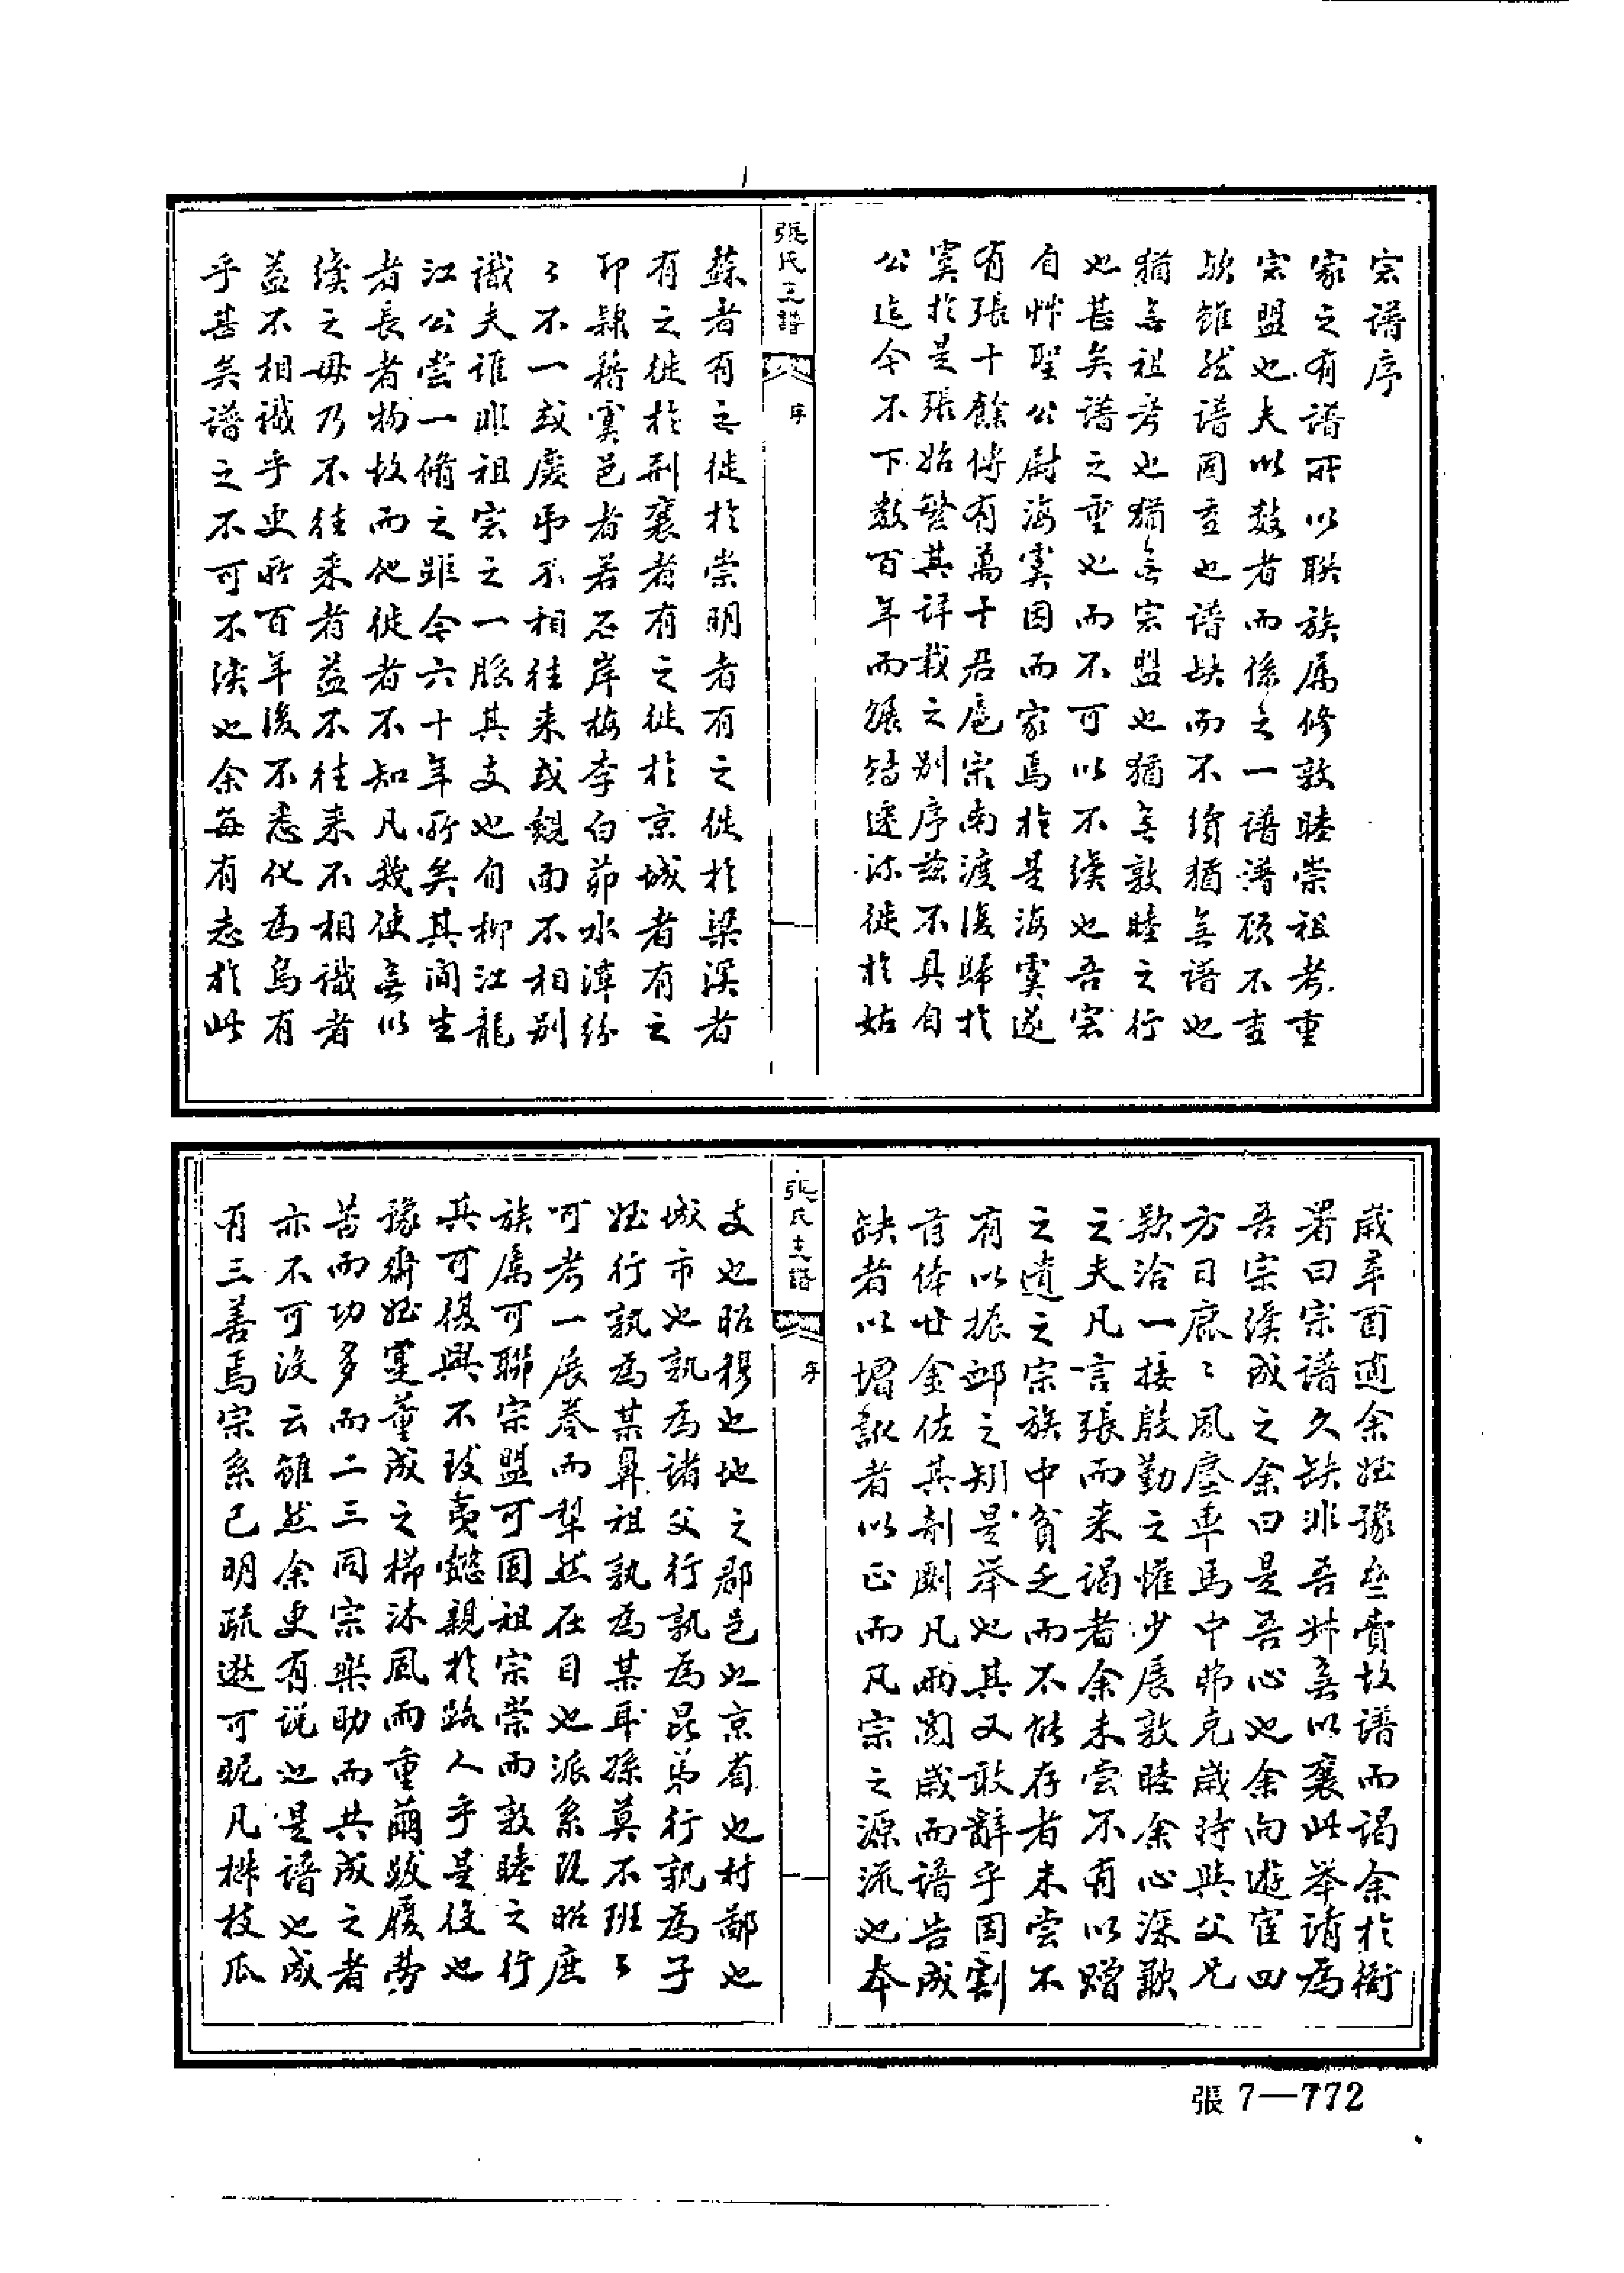 宗譜序
家之有譜所以聯族屬修敦睦崇祖考重
宗盟也夫以數者而係之一譜譜顧不重
欤雖然譜固重也譜缺而不續猶無譜也
猶無祖考也猶無宗盟也猶無敦睦之行
也甚矣譜之重也而不可以不續也吾宗
自忰聖公尉海虞因而家焉於是海虞遂
有張十餘傳有萬十君扈宗南渡後歸於
虞於是張始繁其詳載之別序茲不具自
公迄今不下數百年而繇遂徙於姑
張氏支譜
序
一
蘇者有之徙於崇明者有之徙於梁溪者
有之徙於荊襄者有之徙於京城者有之
即隸籍虞邑者若石岸梅李白茆水漳紛
紛不一或慶弔不相往来或覿面不相別
識夫誰非祖宗之一脈其支也自柳江龍
江公嘗一脩之距今六十年所矣其間生
者長者物故而他徙者不知凡幾使無以
續之毋乃不往来者益不往来不相識者
益不相識乎更所百年後不悉化為烏有
乎甚矣譜之不可不續也余每有志於此
歲辛酉適余姪豫齋賫故譜而謁余於衙
署曰宗譜久缺非吾叔無以襄此舉請為
吾宗續成之余曰是吾心也余向遊宦四
方日鹿鹿風塵車馬中弗克歲時與父兄
欵洽一接殷勤之懽少展敦睦余心深歉
之夫凡言張而来謁者余未尝不有以贈
之遺之宗族中貧乏而不能存者未尝不
有以振卹之矧是举也其又敢辭乎因割
薄俸廿金佐其剞劂凡兩閱歲而譜告成
缺者以增訛者以正而凡宗之源流也本
張氏支譜
序
一
支也昭穆也地之郡邑也京省也村鄙也
城市也孰為諸父行孰為昆弟行孰為子
姪行孰為某鼻祖孰為某耳孫莫不班班
可考一展卷而犁然在目也派系既昭庶
族属可聯宗盟可固祖宗崇而敦睦之行
其可復興不致夷懿親於路人乎是役也
豫齋姪寔董成之櫛沐風而重繭跋履勞
苦而功多而二三同宗樂助而共成之者
亦不可没云雖然余更有说也是譜也成
有三善焉宗系已明疏遨可眤凡椒枝瓜
張7—772